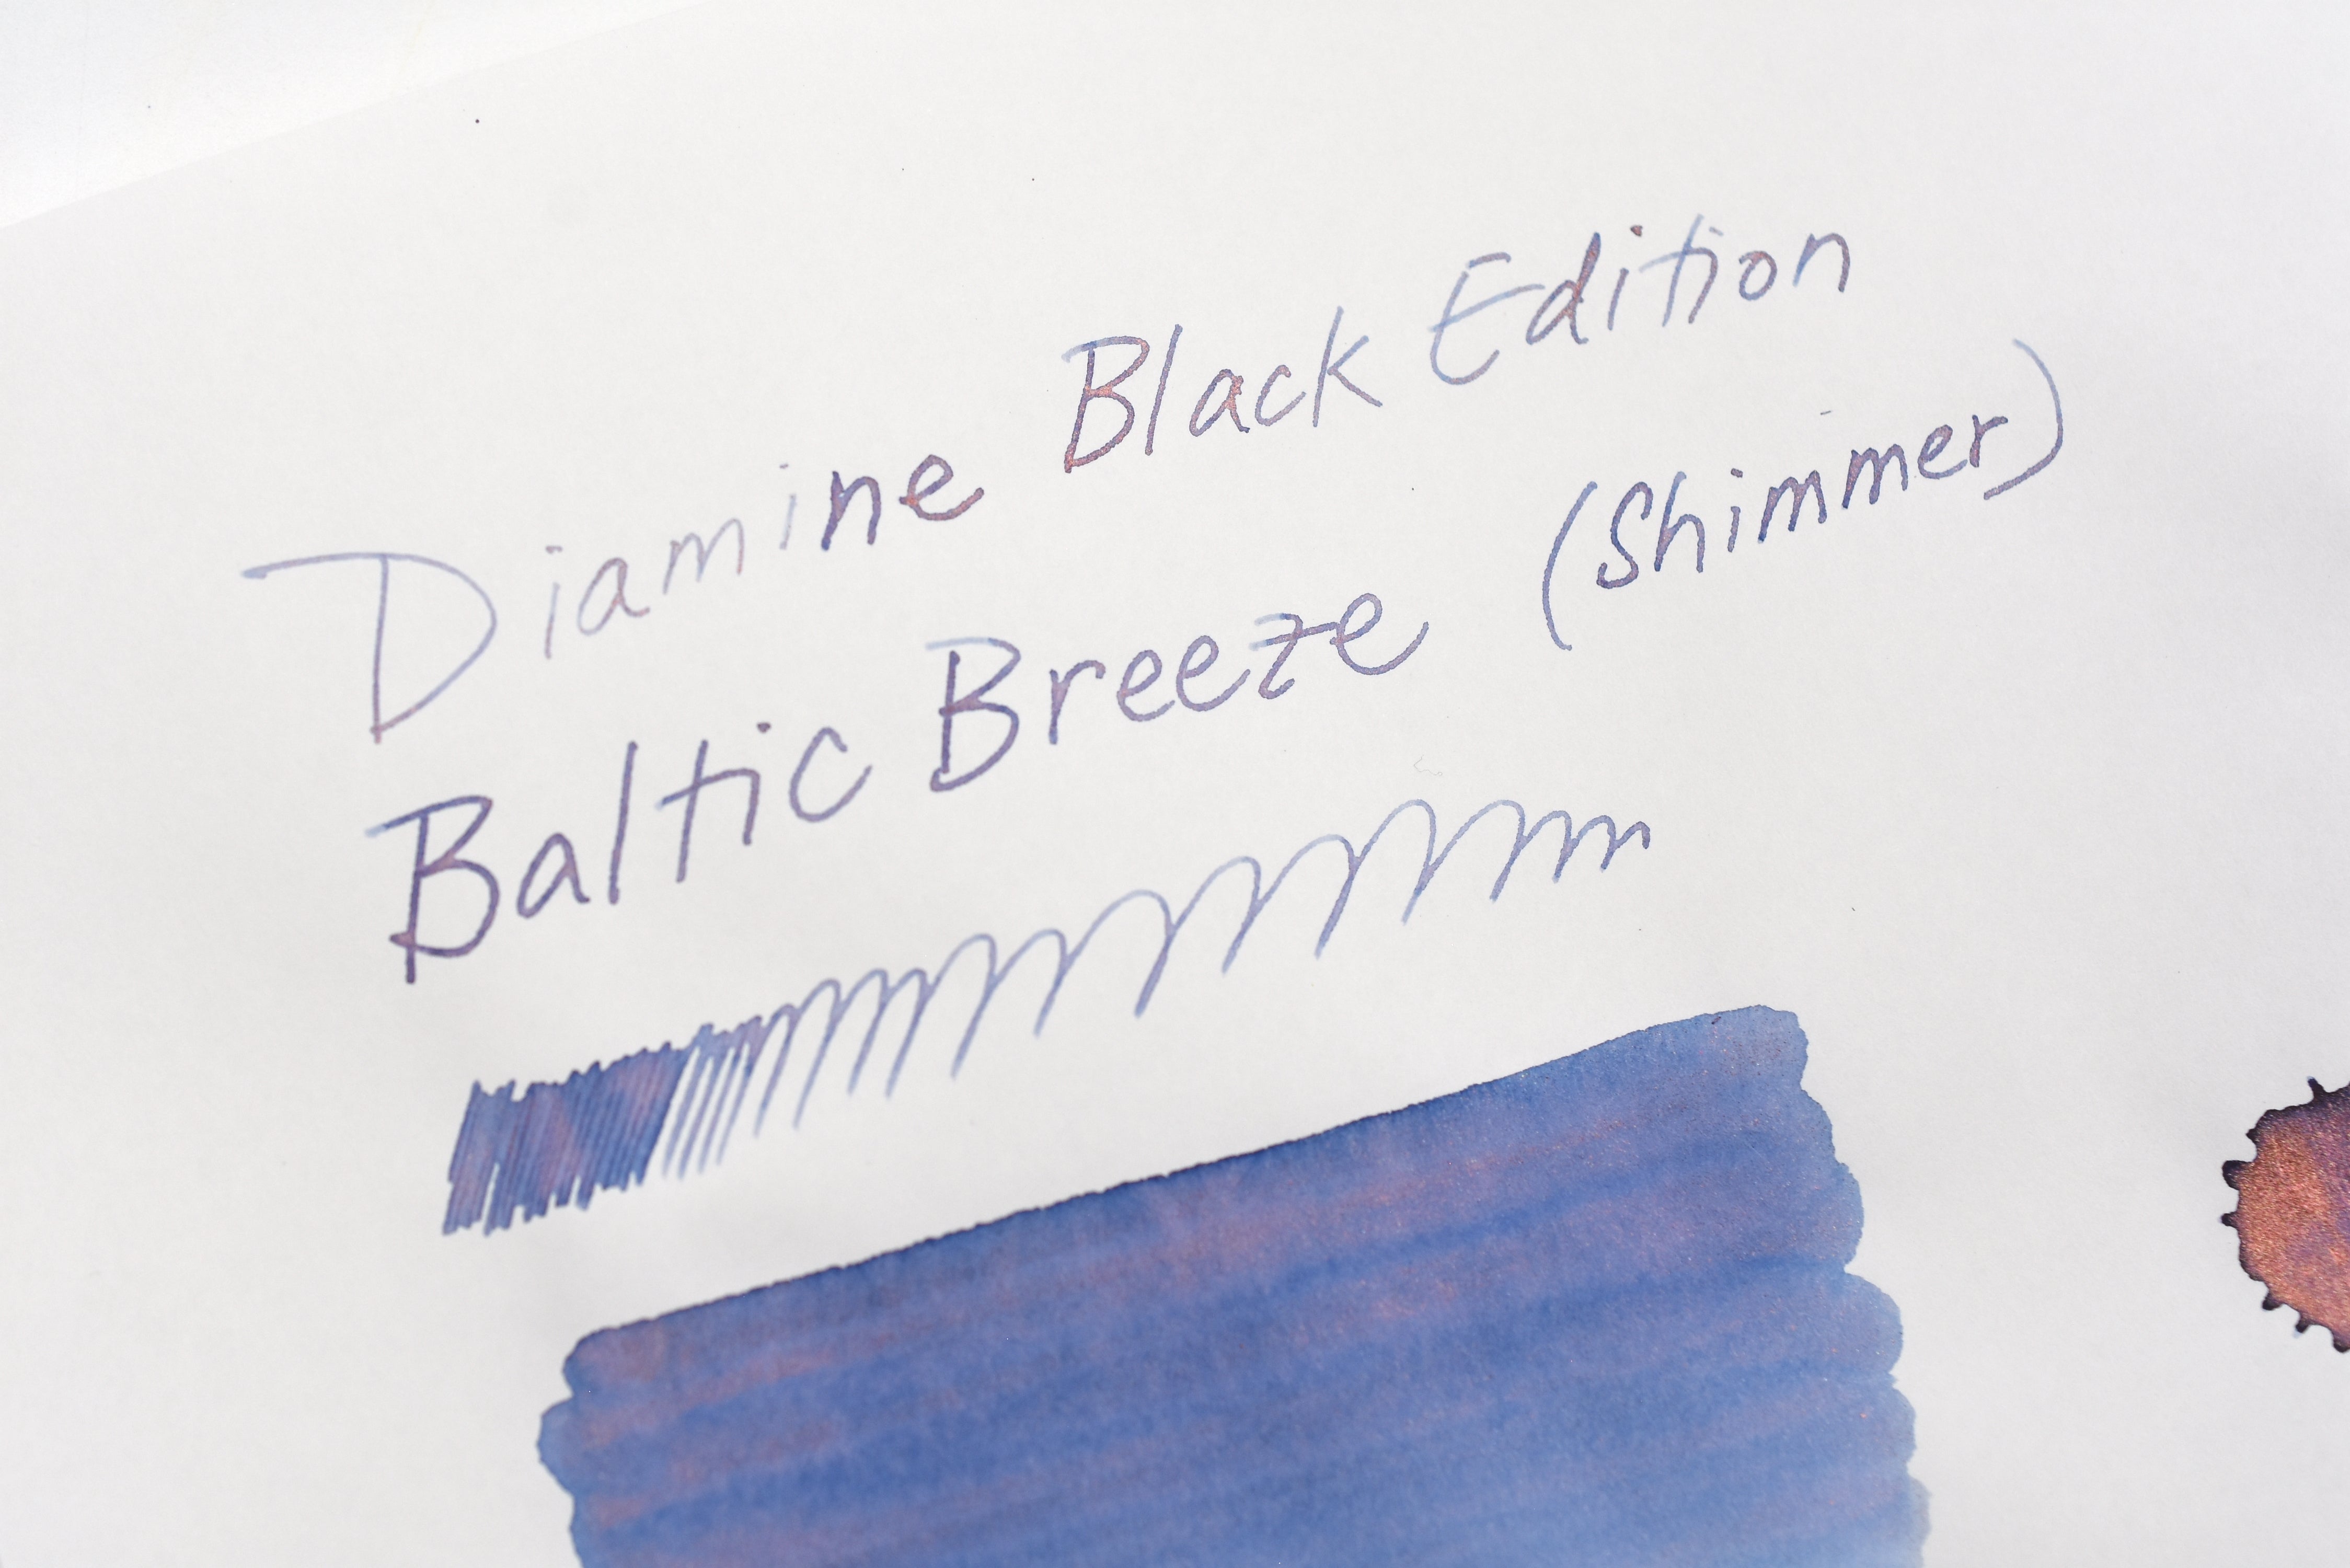 Diamine Black Edition
Baltic Breeze (Shimmer)